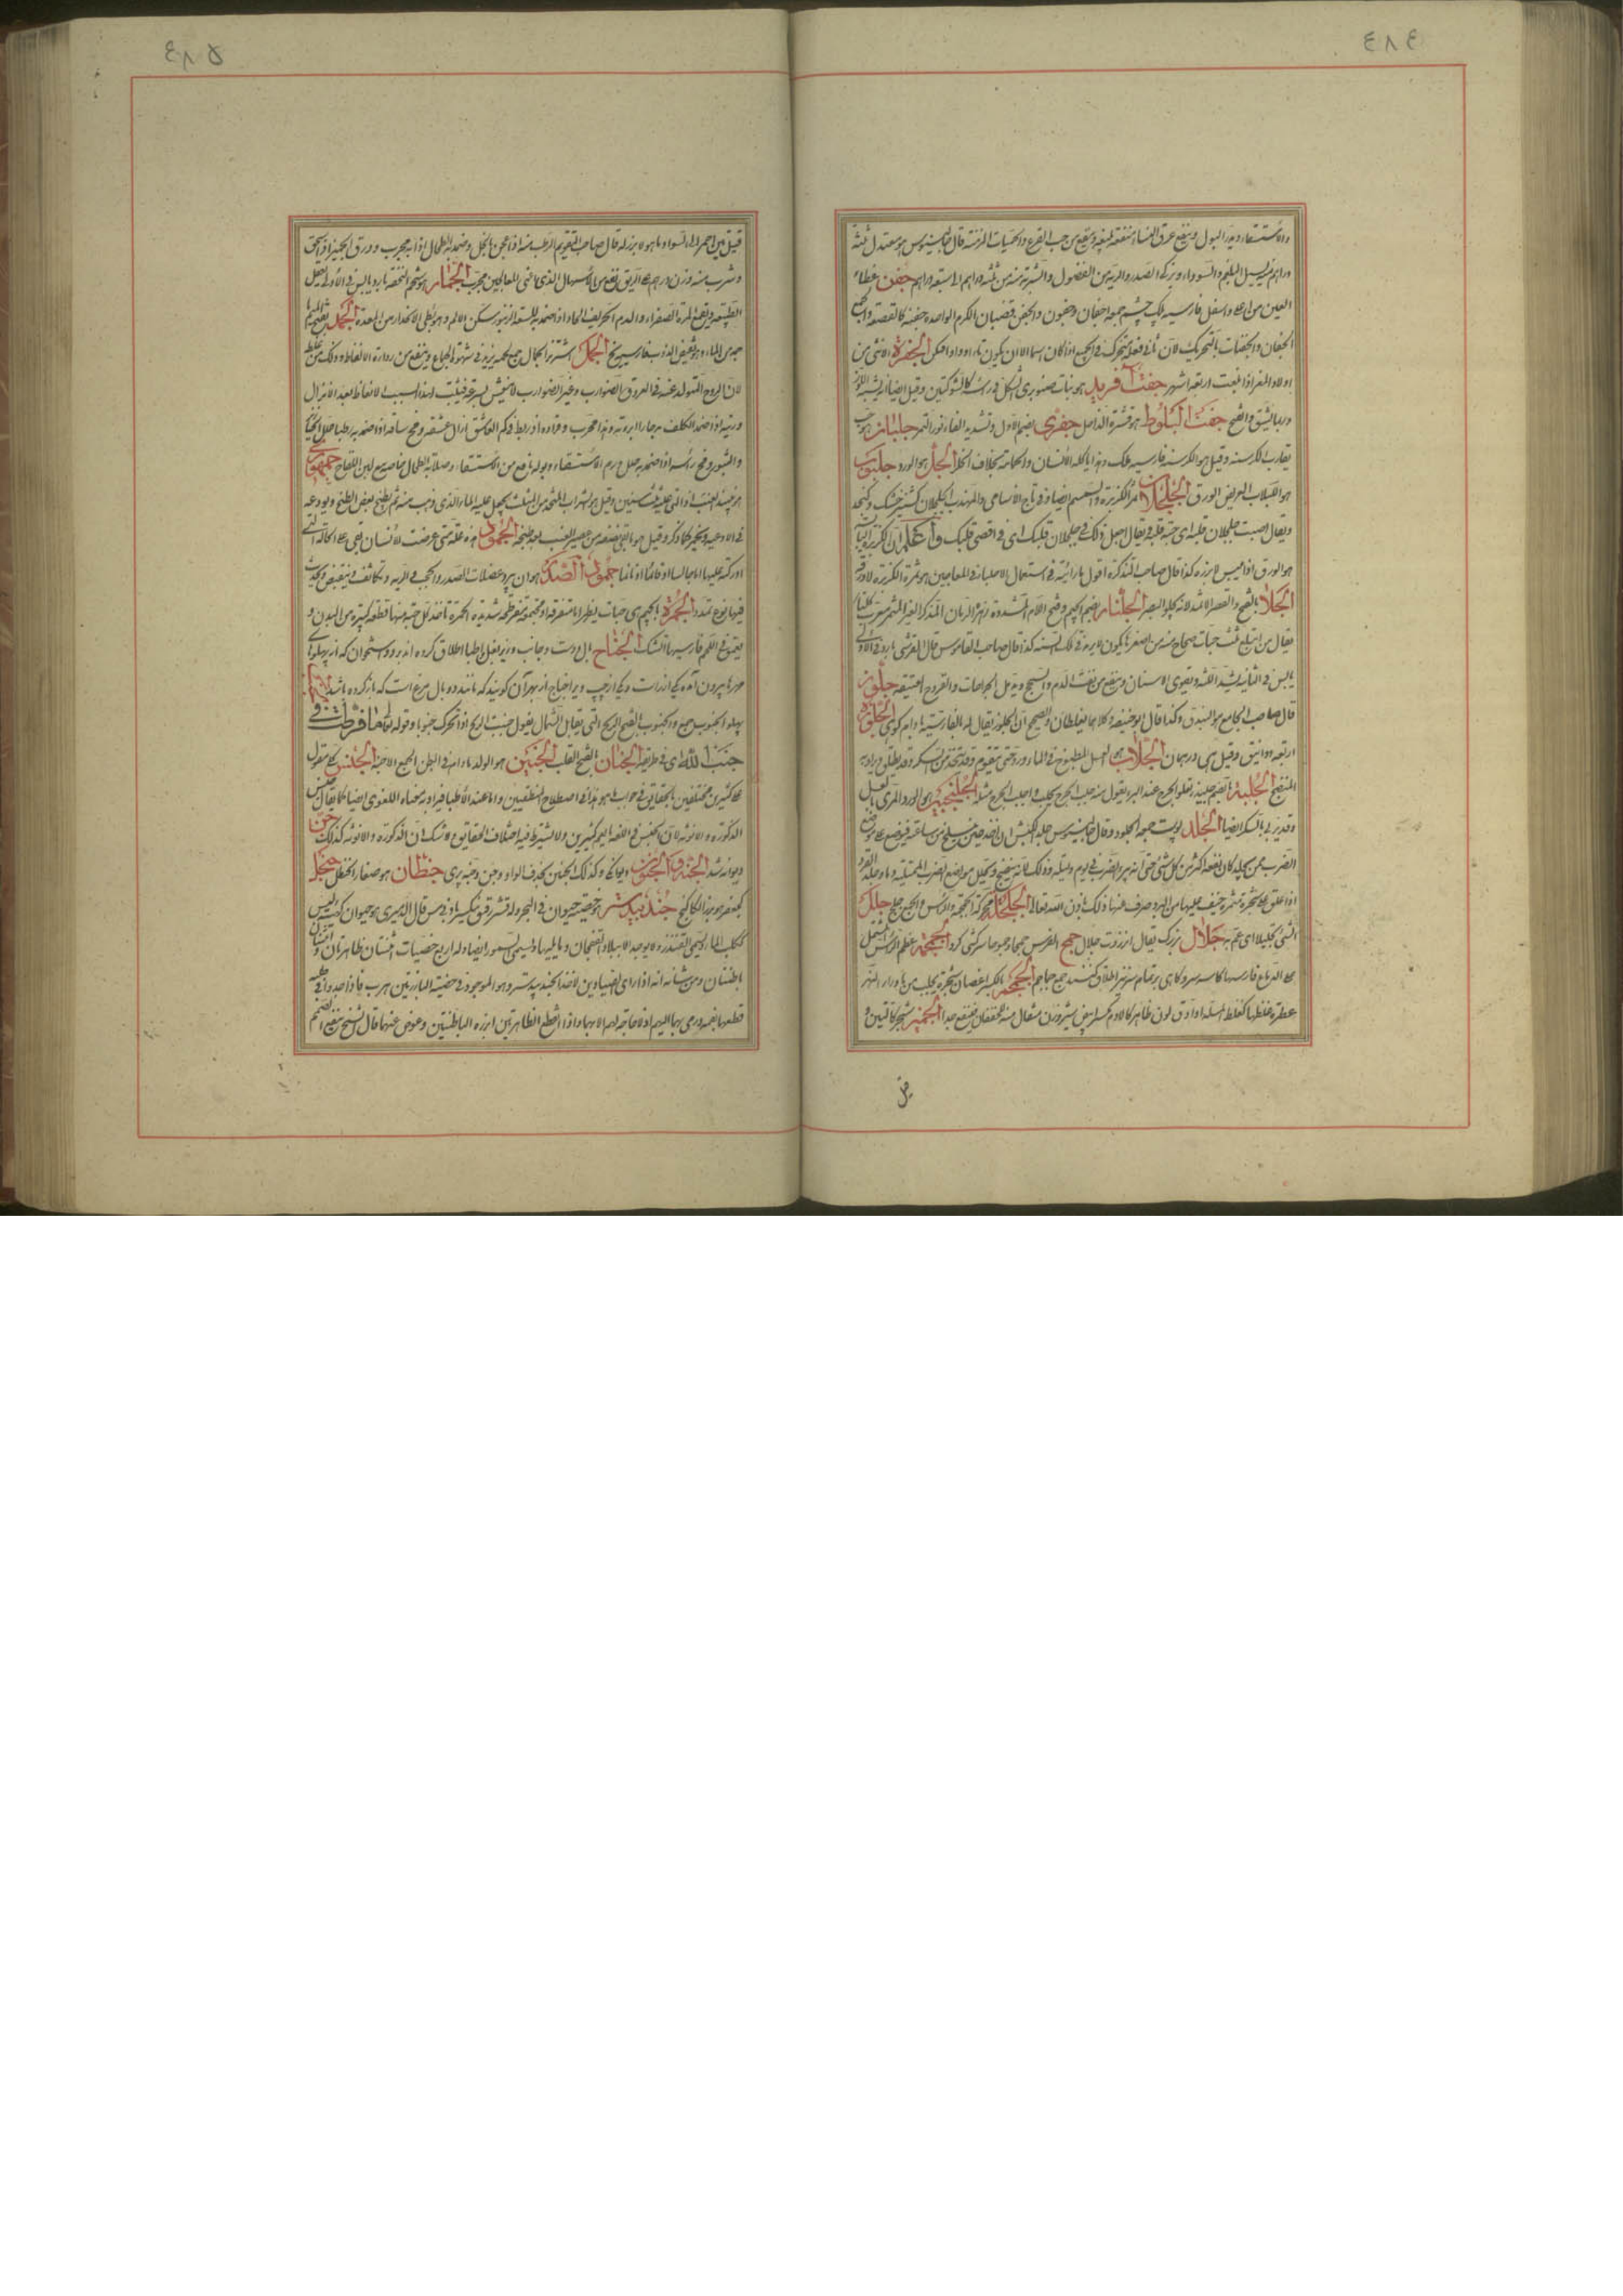 ٤٨٤
والاستسقاء ويدر البول وينفع عرق النساء منفعة بليغة وينفع من حب القرع والحميات المزمنة قال جالينوس هو معتدل ثلثة
دراهم منه يسهل البلغم والسوداء ويزكى الصدر والرية من الفضول والشربة منه من ثلثة دراهم الى سبعة دراهم جفن غطاء
العين من اعلى واسفل فارسيه پلك چشم جمعه اجفان وجفون والجفن قضبان الكرم الواحدة جفنة كالقصعة والجمع
الجفان والجفنات بالتحريك لان ثانى فعلة يتحرك فى الجمع اذا كان اسما الا ان يكون ياء او واوا فيسكن الجفرة الانثى من
اولاد المعز اذا بلغت اربعة اشهر جفت آفريد هو نبات صنوبرى الشكل فى راسه كالشوكتين وقيل ايضا انه يشبه اللوز
وربما يشق وانفتح جفت البلوط هو قشره الداخل جفرى بضم الاول وتشديد الفاء نور التمر جلبان هو حب
يقارب الكرسنة وقيل هو الكرسنة فارسيه ملك وهو مما ياكله الانسان والحمامة بخلاف الخلر الجل هو الورد جلبوب
هو اللبلاب العريض الورق الجلجلان ثمر الكزبرة والسمسم ايضا وفى تاج الاسامى والمهذب الجلجلان كشنيز خشك وكنجد
ويقال اصبت جلجلان قلبه اى حبة قلبه ويقال اجعل ذلك فى جلجلان قلبك اى فى اقصى قلبك واعلم ان الكزبرة اليابسة
هو الورق اذا يبس لا بزره كذا قال صاحب التذكرة اقول ما رايته فى استعمال الاطباء فى المعاجين هو ثمرة الكزبرة لا ورقه
الجلا بالفتح والقصر الاثمد لانه يجلو البصر الجلنار بضم الجيم وفتح اللام المشددة زهرة الرمان المذكر الغير المثمر معرب گلنار
يقال من ابتلع ثلث حبات صحاح منه من اصغر ما يكون لا يرمد فى تلك السنة كذا قال صاحب القاموس قال القرشى بارد فى الاولى
يابس فى الثانية يشد اللثة ويقوى الاسنان وينفع من نفث الدم والسحج ويدمل الجراحات والقروح العتيقة جلوز
قال صاحب الجامع هو البندق وكذا قال ابو حنيفة وكلاهما يغلطان والصحيح ان الجلوز يقال له بالفارسية بادام كوهى الجلوة
اربعة دوانيق وقيل هى درهمان الجلاب هو العسل المطبوخ فى الماء ورد حتى يتقوم وقد يتخذ من السكر وقد يطلق ويراد به
المنضج الجلبة بالضم جليدة تعلو الجرح عند البرء يقول منه جلب الجرح يجلب واجلب الجرح مثله الجلنجبين هو الورد المربى بالعسل
وقد يربى بالسكر ايضا الجلد پوست جمعه الجلود وقال جالينوس جلد الكبش ان اخذ حين يسلخ من ساعته فيوضع على موضع
الضرب ممن يجلد كان نفعه اكثر من كل شىء حتى انه يبرء الضرب فى يوم وليلة وذلك لانه ينضج ويحلل مواضع الضرب الممتلية دما وجلد القرد
اذا علق على شجرة مثمرة خيف عليها من البرد صرف عنها ذلك باذن الله تعالى الجلجلة محركة الجمجمة والراس والجمع جلج جلل
الشىء تجليلا اى عم به جلال بزرك يقال امر ذو جلال جمح الفرس جمحا وجموحا سركشى كرد الجمجمة عظم الراس المشتمل
على الدماغ فارسيها كاسه سر وكاهى برتمام سر نيز اطلاق كنند جمع جماجم الجمجم بالكسر اغصان شجرة يجلب من ما وراء النهر
عطرة غلظها كغلظ السلة او ادق لون ظاهرها كالادم يسير وزن مثقال منه للخفقان فينفع جدا الجميز شجر كالتين و
قيل
٤٨٥
قيل تين احمر الى السواد ما هو لا بزر له قال صاحب التقويم الرطب منه اذا عجن بالخل وضمد به الطحال اذابه مجرب وورق الجميز اذا سحق
وشرب منه وزن درهم على الريق نفع من الاسهال الذى اعيى المعالجين مجرب الجمار هو شحم النخلة بارد يابس فى الاولى يعقل
الطبيعة وينفع المرة الصفراء والدم الحريف الحاد اذا ضمد به لسعة الزنبور سكن الالم وهو بطى الانحدار من المعدة الجمد بفتحتين ما
جمد من الماء وهو نقيض الذوب فارسيه يخ الجمل اشتر نر الجمال جمع لحمه يزيد فى شهوة الجماع وينفع من رداءة الانعاظ وذلك من غلظ
لان الروح المتولد عنه فى العروق الضوارب وغير الضوارب لا ينفش بسرعة فيثبت لهذا السبب الانعاظ بعد الانزال
وريته اذا ضمد الكلف به حارا ابرئه وهو مجرب وقراده اذا ربط فى كم العاشق زال عشقه ومخ ساقه اذا ضمد به رطبا حلل الخنازير
والبثور ومخ راسه اذا ضمد به حلل ورم الاستسقاء وبوله نافع من الاستسقاء وصلابة الطحال خاصة مع لبن اللقاح جمهورى
هو نبيذ العنب اذا اتى عليه ثلث سنين وقيل هو شراب المتخذ من المثلث يجعل عليه الماء الذى ذهب منه ثم يطبخ بعض الطبخ ويودعه
فى الاوعية ويخمر كما ذكر وقيل هو ما بقى نصفه من عصير العنب بعد طبخه الجمود هذه علة متى عرضت لانسان بقى على الحالة التى
ادركته عليها اما جالسا او قائما او نائما جمود الصدر هو ان يبرد عضلات الصدر والحجب فى الرية وتكاثف فينقبض ويحدث
فيها نوع تمدد الجمرة بالجيم هى حبات يظهر اما متفرقة او مجتمعة مفرطحة شديدة الحمرة تاخذ كل حبة منها قطعة كبيرة من البدن و
يتعمق فى اللحم فارسيها آتشك الجناح بال ودست وجانب وزير بغل واطبا اطلاق كرده اند بر دو استخوان كه از پهلوى
مهرها بيرون آمده يكى از راست ويكى از چپ ويرا جناح از بهر آن كويند كه مانند دو بال مرغ است كه باز كرده باشد الجنب
پهلو الجنوب جمع والجنوب بالفتح الريح التى تقابل الشمال يقول جنبت الريح اذا تحرك جنوبا وقوله تعالى ما فرطت فى
جنب الله اى فى طريقه الجنان بالفتح القلب الجنين هو الولد ما دام فى البطن الجمع الاجنة الجنس كلى مقول
على كثيرين مختلفين بالحقايق فى جواب ما هو هذا فى اصطلاح المنطقيين واما عند الاطباء فيراد به معناه اللغوى ايضا كما يقال جنس
الذكورة والانوثة لان الجنس فى اللغة اعم كثيرين ولا يشترط فيه اختلاف الحقايق ولا شك ان الذكورة والانوثة كذلك جن
ديوانه شد الجنة والجنون ديوانگى وكذلك الجنن بحذف الواو وجن وجنه پرى جنطان هو صغار الحنظل جنجل
كجعفر هو بزر الكاكنج جندبيدستر هو خصية حيوان فى البحر وله قشر رقيق ينكسر بادنى مس قال الدميرى هو حيوان كهيئة الكلب ليس
ككلب الماء ويسمى القندر ولا يوجد الا ببلاد القفجاق وما يليها ويسمى السمور ايضا وله اربع خصيات اثنتان ظاهرتان واثنتان
باطنتان ومن شانه انه اذا راى الصيادين لاخذ الجندبيدستر وهو الموجود فى خصيته البارزتين هرب فاذا جدوا فى طلبه
قطعهما بفمه ورمى بهما اليهم اذ لا حاجة لهم الا بهما واذا انقطع الظاهرتين ابرز الباطنتين وعوض عنهما قال الشيخ ينفع الصمم